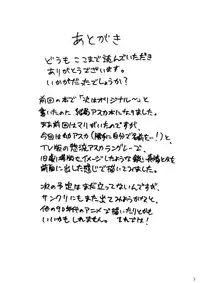 あとがき
どうも ここまで読んでいただき
ありがとうございます。
いかがでしたでしょうか？
前回の本で「次はオリジナル〜」と
書いたのに 結局アスカ本になりました。
まあ前回はマリがいたのですが、
今回は旧アスカ(勝手に自分で名前を…!)と、
TV版の惣流アスカラングレーで、
旧劇場版をイメージしたような 鋭い
前面に出した感じで描いてみました。
次の予定はまだ立ってないんですが、
サンクリにもまた出てみようかなと、
他の90年代のアニメで描いたりとかも
いいかもしれません。それでは!